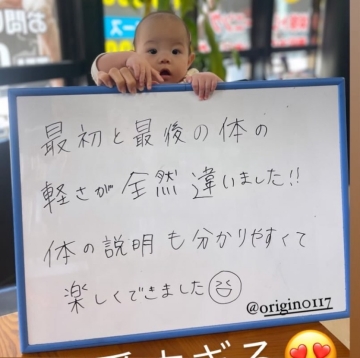 最初と最後の体の
軽さが全然違いました!!
体の説明も分かりやすくて
楽しくできました
@origin0117